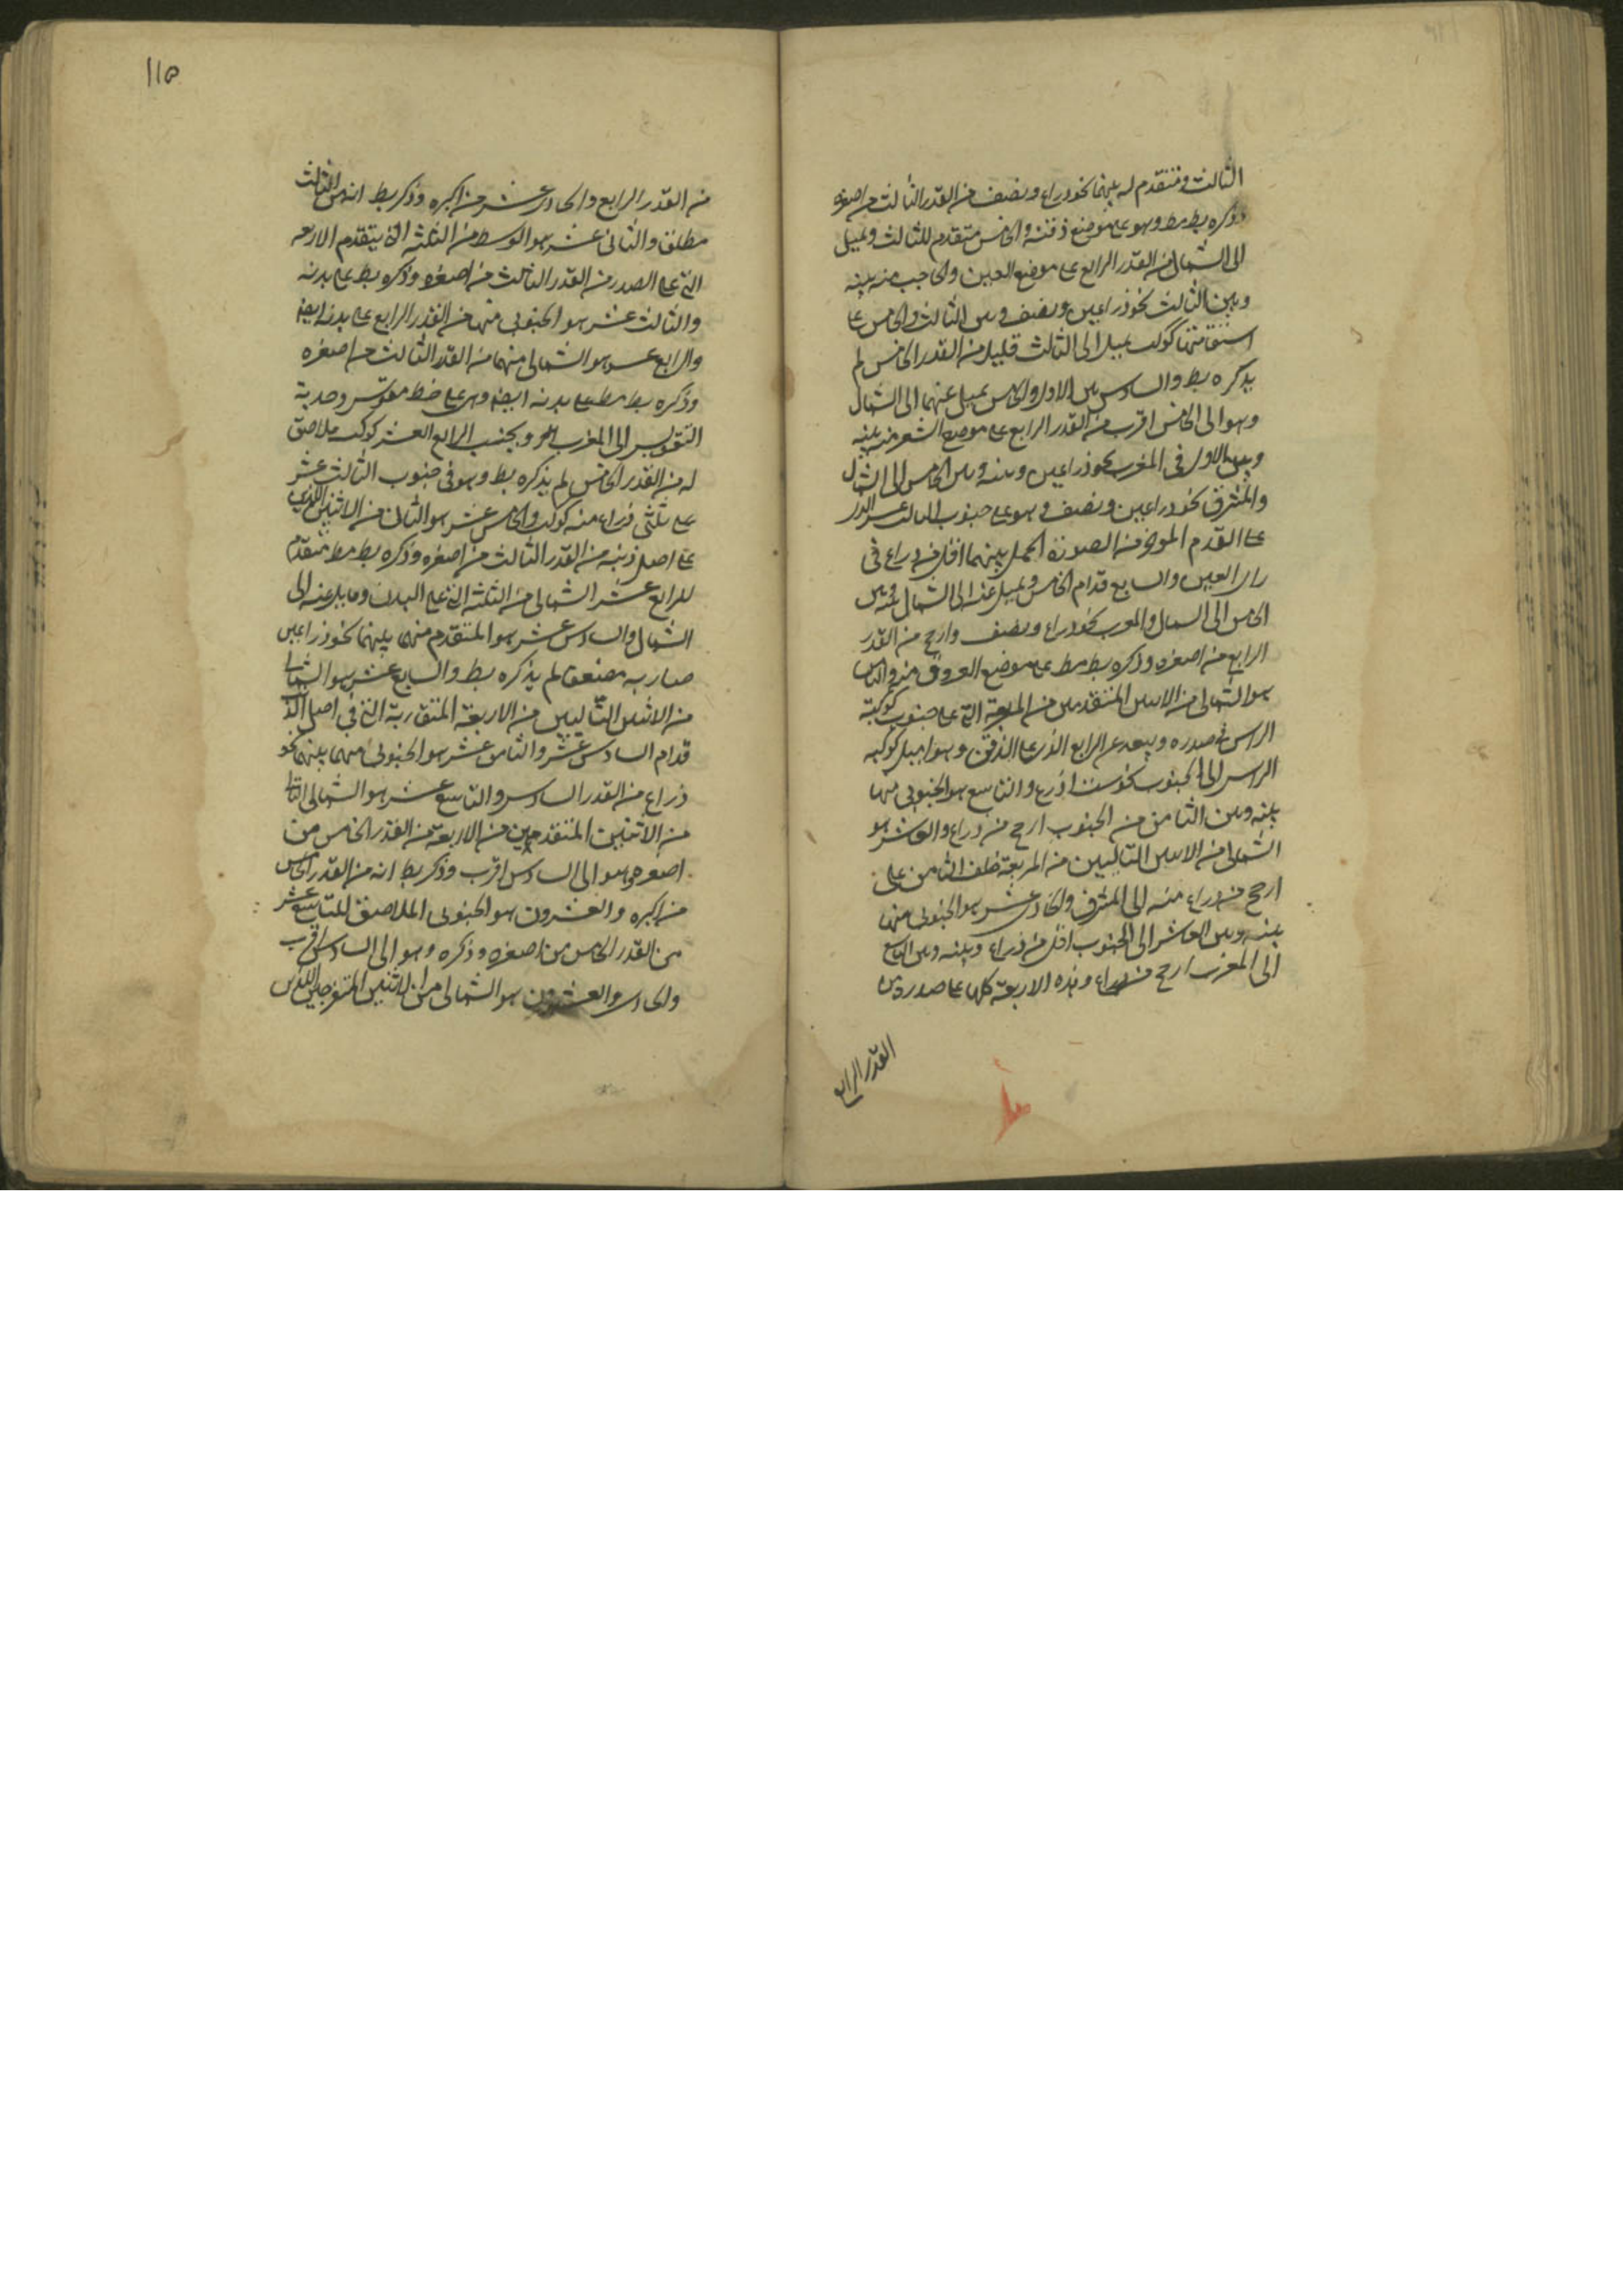 الثالث ومتقدم له بينهما نحو ذراع ونصف من القدر الثالث من اصغره
وذكره بط مط وهو على موضع ذقنه والخامس متقدم للثالث ويميل
الى الشمال من القدر الرابع على موضع العين والحاجب منه بينه
وبين الثالث نحو ذراعين ونصف وبين الثالث والخامس على
استقامتهما كوكب يميل الى الثالث قليلا من القدر الخامس لم
يذكره بط والسادس بين الاول والخامس يميل عنهما الى الشمال
وهو الى الخامس اقرب من القدر الرابع على موضع الشعر منه بينه
وبين الاول في المغرب نحو ذراعين وبينه وبين الخامس الى الشمال
والمشرق نحو ذراعين ونصف وهو على جنوب الثالث عشر الذي
على القدم المؤخر من الصورة الحمل بينهما اقل من ذراع في
راى العين والسابع قدام الخامس ويميل عنه الى الشمال
الخامس الى الشمال والمغرب نحو ذراع ونصف وارجح من القدر
الرابع من اصغره وذكره بط مط على موضع العرف منه والثامن
هو الشمالي من الاثنين المتقدمين من المربعة التي على جنوب كوكبة
الراس في صدره وبعده عن الرابع الذي على الذقن وهو اميل كوكبه
الراس الى الجنوب نحو ست اذرع والتاسع هو الجنوبي منهما
بينه وبين الثامن من الجنوب ارجح من ذراع والعاشر هو
الشمالي من الاثنين التاليين من المربعة خلف الثامن على
ارجح من ذراع منه الى المشرق والحادي عشر هو الجنوبي منهما
بينه وبين العاشر الى الجنوب اقل من ذراع وبينه وبين التاسع
الى المغرب ارجح من ذراع وهذه الاربعة كلها على صدره
القدر الرابع
١١٥
من القدر الرابع والحادي عشر من اكبره وذكر بط انه من الثالث
مطلق والثاني عشر هو الوسط من الثلثة التي يتقدم الاربعة
التي على الصدر من القدر الثالث من اصغره وذكره بط على بدنه
والثالث عشر هو الجنوبي منهما من القدر الرابع على بدنه ايضا
والرابع عشر هو الشمالي منهما من القدر الثالث من اصغره
وذكره بط مط على بدنه ايضا وهي على خط مقوس وحدبة
التقويس الى المغرب وبجنب الرابع العشر كوكب ملاصق
له من القدر الخامس لم يذكره بط وهو في جنوب الثالث عشر
على ثلثي ذراع منه كوكب والخامس عشر هو التالي من الاثنين اللذين
على اصل ذنبه من القدر الثالث من اصغره وذكره بط مط متقدم
للرابع عشر الشمالي من الثلثة التي على البدن ومايل عنه الى
الشمال والسادس عشر هو المتقدم منهما بينهما نحو ذراعين
لم يذكره بط والسابع عشر هو الشمالي
من الاثنين التاليين من الاربعة المتقاربة التي في اصل الذنب
قدام السادس عشر والثامن عشر هو الجنوبي منهما بينهما نحو
ذراع من القدر السادس والتاسع عشر هو الشمالي
من الاثنين المتقدمين من الاربعة من القدر الخامس من
اصغره وهو الى السادس اقرب وذكر بط انه من القدر الخامس
من اكبره والعشرون هو الجنوبي الملاصق للتاسع عشر
من القدر الخامس من اصغره وذكره وهو الى السادس اقرب
والحادي والعشرون هو الشمالي من الاثنين المتفرجين اللذين